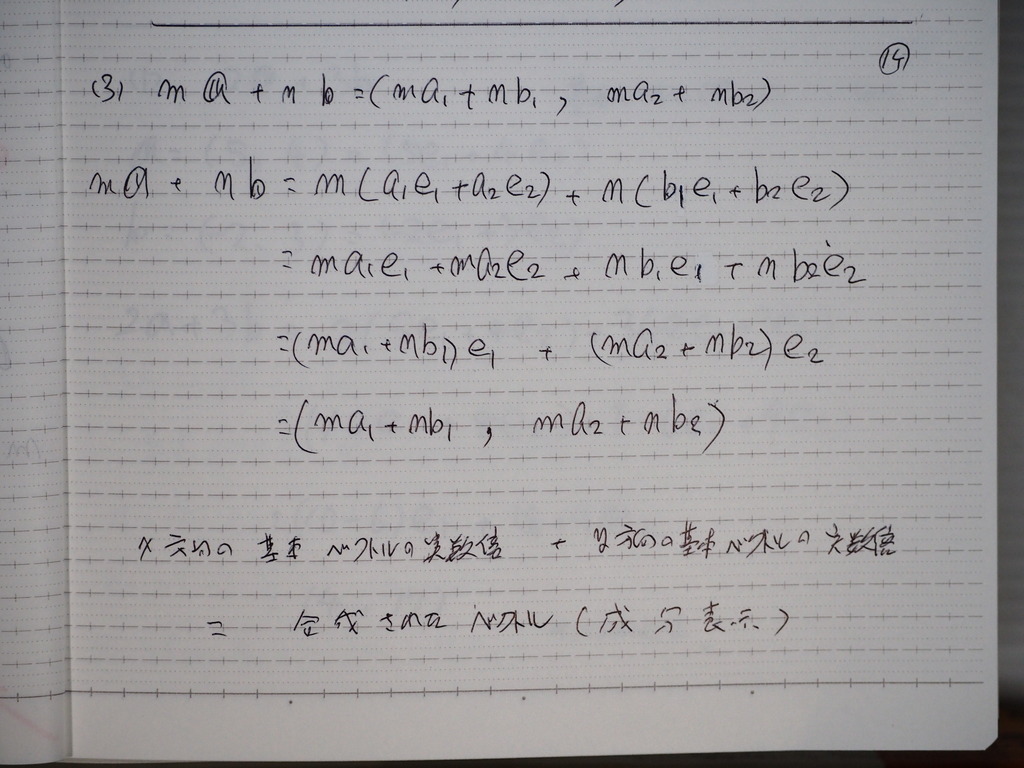 ⑭
(3) m𝕒 + n𝕓 = (ma₁ + nb₁ , ma₂ + nb₂)
m𝕒 + n𝕓 = m(a₁e₁ + a₂e₂) + n(b₁e₁ + b₂e₂)
= ma₁e₁ + ma₂e₂ + nb₁e₁ + nb₂e₂
= (ma₁ + nb₁)e₁ + (ma₂ + nb₂)e₂
= (ma₁ + nb₁ , ma₂ + nb₂)
x方向の基本ベクトルの実数倍 + y方向の基本ベクトルの実数倍
= 合成されたベクトル(成分表示)